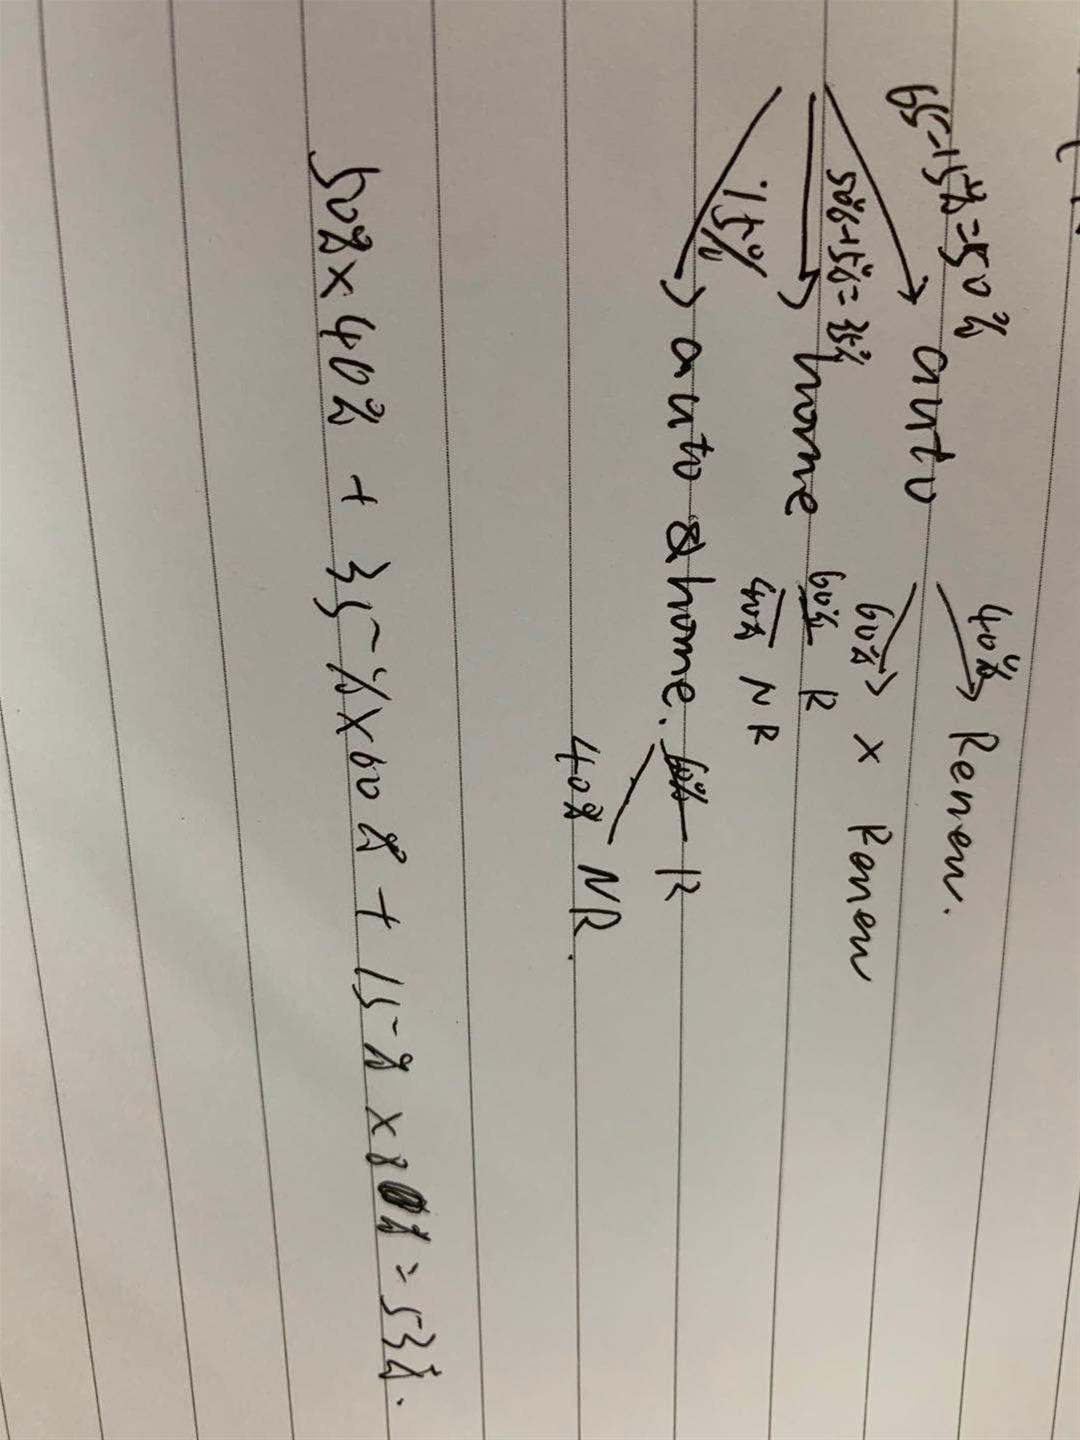 65-15%=50%
auto
40% Renew.
60% x Renew
50%-15%=35%
home
60% R
40% NR
15%
auto & home.
60% R
40% NR.
50%x40% + 35%x60% + 15%x80%=53%.